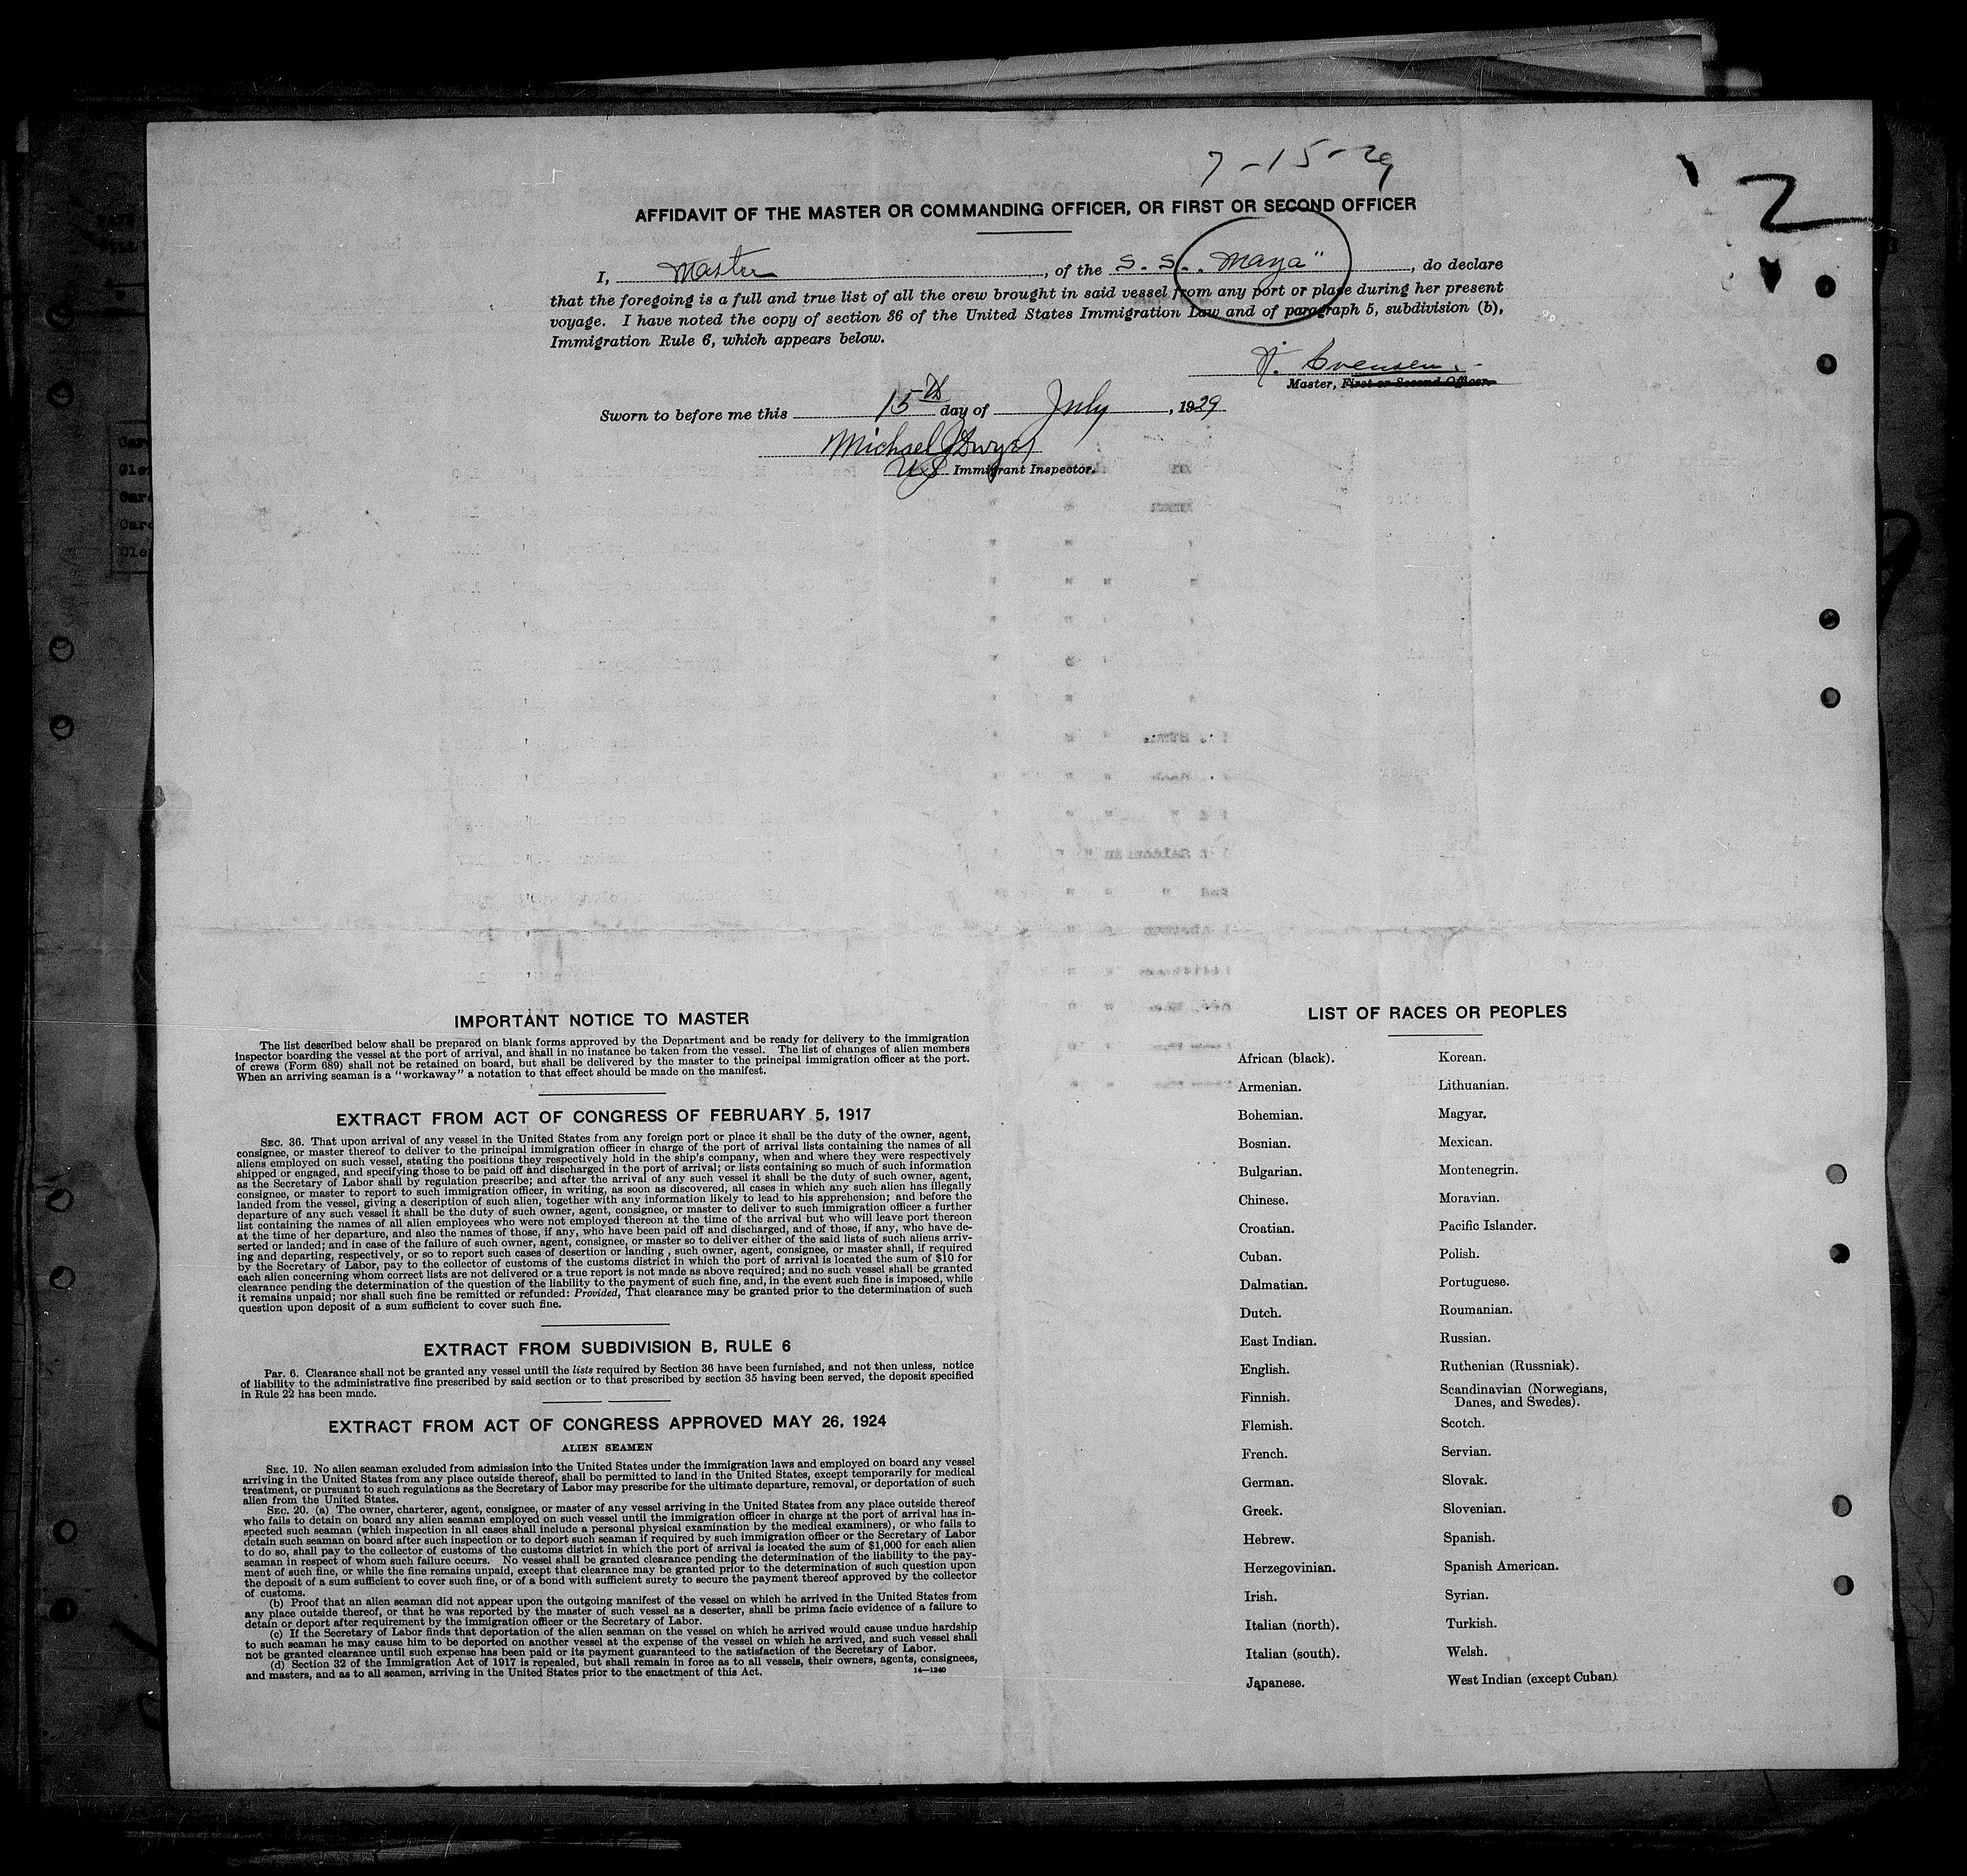 7-15-29
2
AFFIDAVIT OF THE MASTER OR COMMANDING OFFICER, OR FIRST OR SECOND OFFICER
I, Master, of the S. S. "Maya", do declare
that the foregoing is a full and true list of all the crew brought in said vessel from any port or place during her present
voyage. I have noted the copy of section 36 of the United States Immigration Law and of paragraph 5, subdivision (b),
Immigration Rule 6, which appears below.
Master, First or Second Officer.
Sworn to before me this 15th day of July, 1929
Michael J Dwyer
US Immigrant Inspector.
IMPORTANT NOTICE TO MASTER
The list described below shall be prepared on blank forms approved by the Department and be ready for delivery to the immigration
inspector boarding the vessel at the port of arrival, and shall in no instance be taken from the vessel. The list of changes of alien members
of crews (Form 689) shall not be retained on board, but shall be delivered by the master to the principal immigration officer at the port.
When an arriving seaman is a "workaway" a notation to that effect should be made on the manifest.
EXTRACT FROM ACT OF CONGRESS OF FEBRUARY 5, 1917
SEC. 36. That upon arrival of any vessel in the United States from any foreign port or place it shall be the duty of the owner, agent,
consignee, or master thereof to deliver to the principal immigration officer in charge of the port of arrival lists containing the names of all
aliens employed on such vessel, stating the positions they respectively hold in the ship's company, when and where they were respectively
shipped or engaged, and specifying those to be paid off and discharged in the port of arrival; or lists containing so much of such information
as the Secretary of Labor shall by regulation prescribe; and after the arrival of any such vessel it shall be the duty of such owner, agent,
consignee, or master to report to such immigration officer, in writing, as soon as discovered, all cases in which any such alien has illegally
landed from the vessel, giving a description of such alien, together with any information likely to lead to his apprehension; and before the
departure of any such vessel it shall be the duty of such owner, agent, consignee, or master to deliver to such immigration officer a further
list containing the names of all alien employees who were not employed thereon at the time of the arrival but who will leave port thereon
at the time of her departure, and also the names of those, if any, who have been paid off and discharged, and of those, if any, who have de-
serted or landed; and in case of the failure of such owner, agent, consignee, or master so to deliver either of the said lists of such aliens arriv-
ing and departing, respectively, or so to report such cases of desertion or landing , such owner, agent, consignee, or master shall, if required
by the Secretary of Labor, pay to the collector of customs of the customs district in which the port of arrival is located the sum of $10 for
each alien concerning whom correct lists are not delivered or a true report is not made as above required; and no such vessel shall be granted
clearance pending the determination of the question of the liability to the payment of such fine, and, in the event such fine is imposed, while
it remains unpaid; nor shall such fine be remitted or refunded: Provided, That clearance may be granted prior to the determination of such
question upon deposit of a sum sufficient to cover such fine.
EXTRACT FROM SUBDIVISION B, RULE 6
Par. 6. Clearance shall not be granted any vessel until the lists required by Section 36 have been furnished, and not then unless, notice
of liability to the administrative fine prescribed by said section or to that prescribed by section 35 having been served, the deposit specified
in Rule 22 has been made.
EXTRACT FROM ACT OF CONGRESS APPROVED MAY 26, 1924
ALIEN SEAMEN
SEC. 19. No alien seaman excluded from admission into the United States under the immigration laws and employed on board any vessel
arriving in the United States from any place outside thereof, shall be permitted to land in the United States, except temporarily for medical
treatment, or pursuant to such regulations as the Secretary of Labor may prescribe for the ultimate departure, removal, or deportation of such
alien from the United States.
SEC. 20. (a) The owner, charterer, agent, consignee, or master of any vessel arriving in the United States from any place outside thereof
who fails to detain on board any alien seaman employed on such vessel until the immigration officer in charge at the port of arrival has in-
spected such seaman (which inspection in all cases shall include a personal physical examination by the medical examiners), or who fails to
detain such seaman on board after such inspection or to deport such seaman if required by such immigration officer or the Secretary of Labor
to do so, shall pay to the collector of customs of the customs district in which the port of arrival is located the sum of $1,000 for each alien
seaman in respect of whom such failure occurs. No vessel shall be granted clearance pending the determination of the liability to the pay-
ment of such fine, or while the fine remains unpaid, except that clearance may be granted prior to the determination of such question upon
the deposit of a sum sufficient to cover such fine, or of a bond with sufficient surety to secure the payment thereof approved by the collector
of customs.
(b) Proof that an alien seaman did not appear upon the outgoing manifest of the vessel on which he arrived in the United States from
any place outside thereof, or that he was reported by the master of such vessel as a deserter, shall be prima facie evidence of a failure to
detain or deport after requirement by the immigration officer or the Secretary of Labor.
(c) If the Secretary of Labor finds that deportation of the alien seaman on the vessel on which he arrived would cause undue hardship
to such seaman he may cause him to be deported on another vessel at the expense of the vessel on which he arrived, and such vessel shall
not be granted clearance until such expense has been paid or its payment guaranteed to the satisfaction of the Secretary of Labor.
(d) Section 32 of the Immigration Act of 1917 is repealed, but shall remain in force as to all vessels, their owners, agents, consignees,
and masters, and as to all seamen, arriving in the United States prior to the enactment of this Act.
14—1240
LIST OF RACES OR PEOPLES
African (black).
Armenian.
Bohemian.
Bosnian.
Bulgarian.
Chinese.
Croatian.
Cuban.
Dalmatian.
Dutch.
East Indian.
English.
Finnish.
Flemish.
French.
German.
Greek.
Hebrew.
Herzegovinian.
Irish.
Italian (north).
Italian (south).
Japanese.
Korean.
Lithuanian.
Magyar.
Mexican.
Montenegrin.
Moravian.
Pacific Islander.
Polish.
Portuguese.
Roumanian.
Russian.
Ruthenian (Russniak).
Scandinavian (Norwegians,
Danes, and Swedes).
Scotch.
Servian.
Slovak.
Slovenian.
Spanish.
Spanish American.
Syrian.
Turkish.
Welsh.
West Indian (except Cuban).